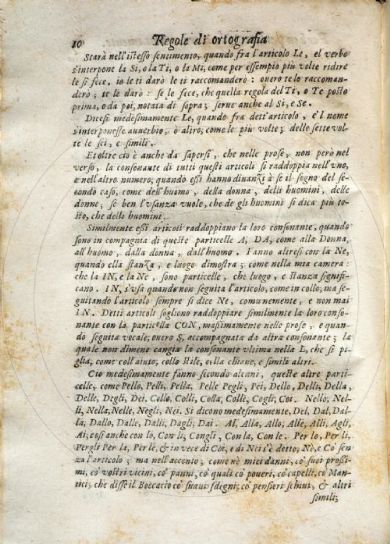 10 Regole di ortografia
Starà nell'istesso sentimento, quando fra l'articolo Le, el verbo
s'interpone la Si, o la Ti, o la Mi, come per essempio più volte ridire
le si fece. io le ti darò le ti raccommanderò: ouero te lo raccoman-
derò; te le darò: se le fece, che quella regola del Ti, o Te posto
prima, o da poi, notata di sopra; serue anche al Si, e Se.
Dicesi medesimamente Le, quando fra dett'articolo, e'l nome
s'interponesse auuerbio; ò altro, come le più volte; delle sette vol-
te le sei, e simili.
Et oltre ciò è anche da sapersi, che nelle prose, non però nel
verso, la consonante di tutti questi articoli si raddoppia nell'vno,
e nell'altro numero, quando essi hanno dinanzi à se il segno del se-
condo caso, come dell'huomo, della donna, delli huomini, delle
donne; se ben l'vsanza vuole, che de gli huomini si dica più to-
sto, che delli huomini.
Similmente essi articoli raddoppiano la loro consonante, quando
sono in compagnia di queste particelle A, DA, come alla Donna,
all'huomo, dalla donna, dall'huomo, l'anno altresi con la Ne,
quando ella stanza, e luogo dimostra; come nella mia camera:
che la IN, e la Ne, sono particelle, che luogo, e stanza significano.
IN, s'vsa quando non seguita l'articolo, come in collo, ma se-
guitando l'articolo sempre si dice Ne, comunemente, e non mai
IN. Detti articoli sogliono raddoppiare similmente la loro conso-
nante con la particella CON, massimamente nelle prose, e quan-
do seguita vocale, ouero S, accompagnata da altra consonante; la
quale non dimeno cangia la consonante vltima nella L, che si pi-
glia, come coll'aiuto, collo stile, colla chiaue, e simili altri.
Ciò medesimamente fanno secondo alcuni, queste altre parti-
celle, come Pello, Pelli, Pella, Pelle Pegli, Pei, Dello, Delli, Della,
Delle, Degli, Dei, Collo, Colli, Colla, Colle, Cogli, Coi. Nello, Nel-
li, Nella, Nelle, Negli, Nei. Si dicono medesimamente, Del, Dal, Dal-
la, Dallo, Dalle, Dalli, Dagli, Dai. Al, Alla, Allo, Alle, Alli, Agli,
Ai, così anche con lo, Con li, Con gli, Con la, Con le. Per lo, Per li,
Per gli Per la, Per le, & in vece di Coi, e di Nei s'è detto, Nè, e Co' sen-
za l'articolo; ma nell'accento, come nè miei danni, cò' suoi prossi-
mi, cò' vostri vicini, cò' panni, cò' quali cò' poueri, cò' capelli, cò' Man-
tici, che disse il Boccacio cò' suaui sdegni, cò' pensieri schiui, & altri
simili;